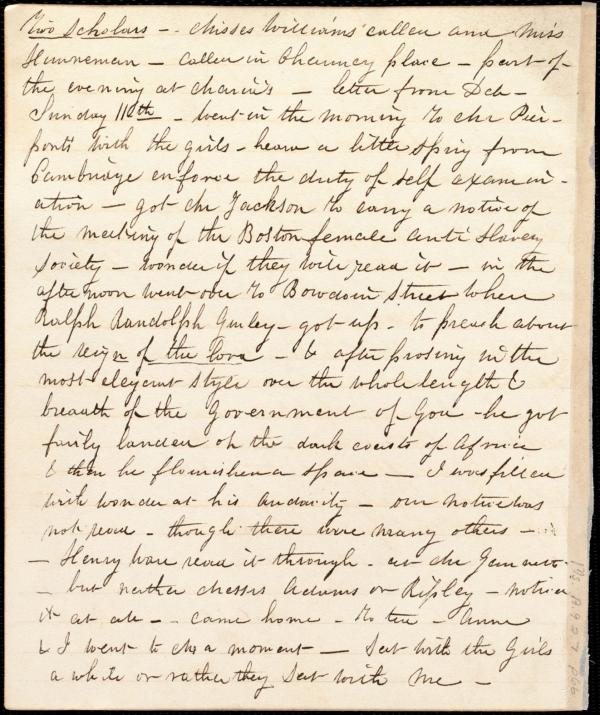 Two Scholars - Misses Williams called and Miss
Hunneman - called in Chauncy place - part of
the evening at Maria's - letter from Deb -
Sunday 11th - went in the morning to Mr Pier-
ponts with the girls - heard a little sprig from
Cambridge enforce the duty of self examin-
ation - got Mr Jackson to carry a notice of
the meeting of the Boston female anti Slavery
Society - wonder if they will read it - in the
afternoon went over to Bowdoin Street where
Ralph Randolph Gurley - got up - to preach about
the reign of the Lord - & after prosing in the
most elegant style over the whole length &
breadth of the Government of God - he got
fairly landed on the dark coasts of Africa
& then he flourished a space - I was filled
with wonder at his audacity - our notice was
not read - though there were many others -
- Henry Ware read it through - at Mr Gannett
- but neither Messrs Adams or Ripley - noticed
it at all - came home - to tea - Anne
& I went to a moment - Sat with the Girls
a while or rather they Sat with me -